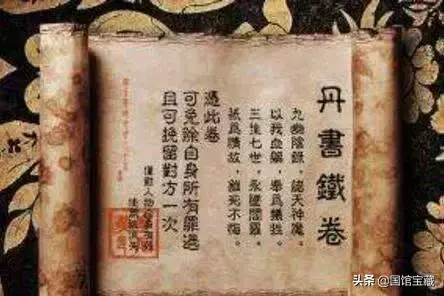 丹書鐵卷
九幽陰靈，諸天神魔，
以我血軀，奉爲犧牲。
三生七世，永墮閻羅，
祇爲情故，雖死不悔。
憑此卷
可免除自身所有罪過
且可挽留對方一次
头条 @国馆宝藏